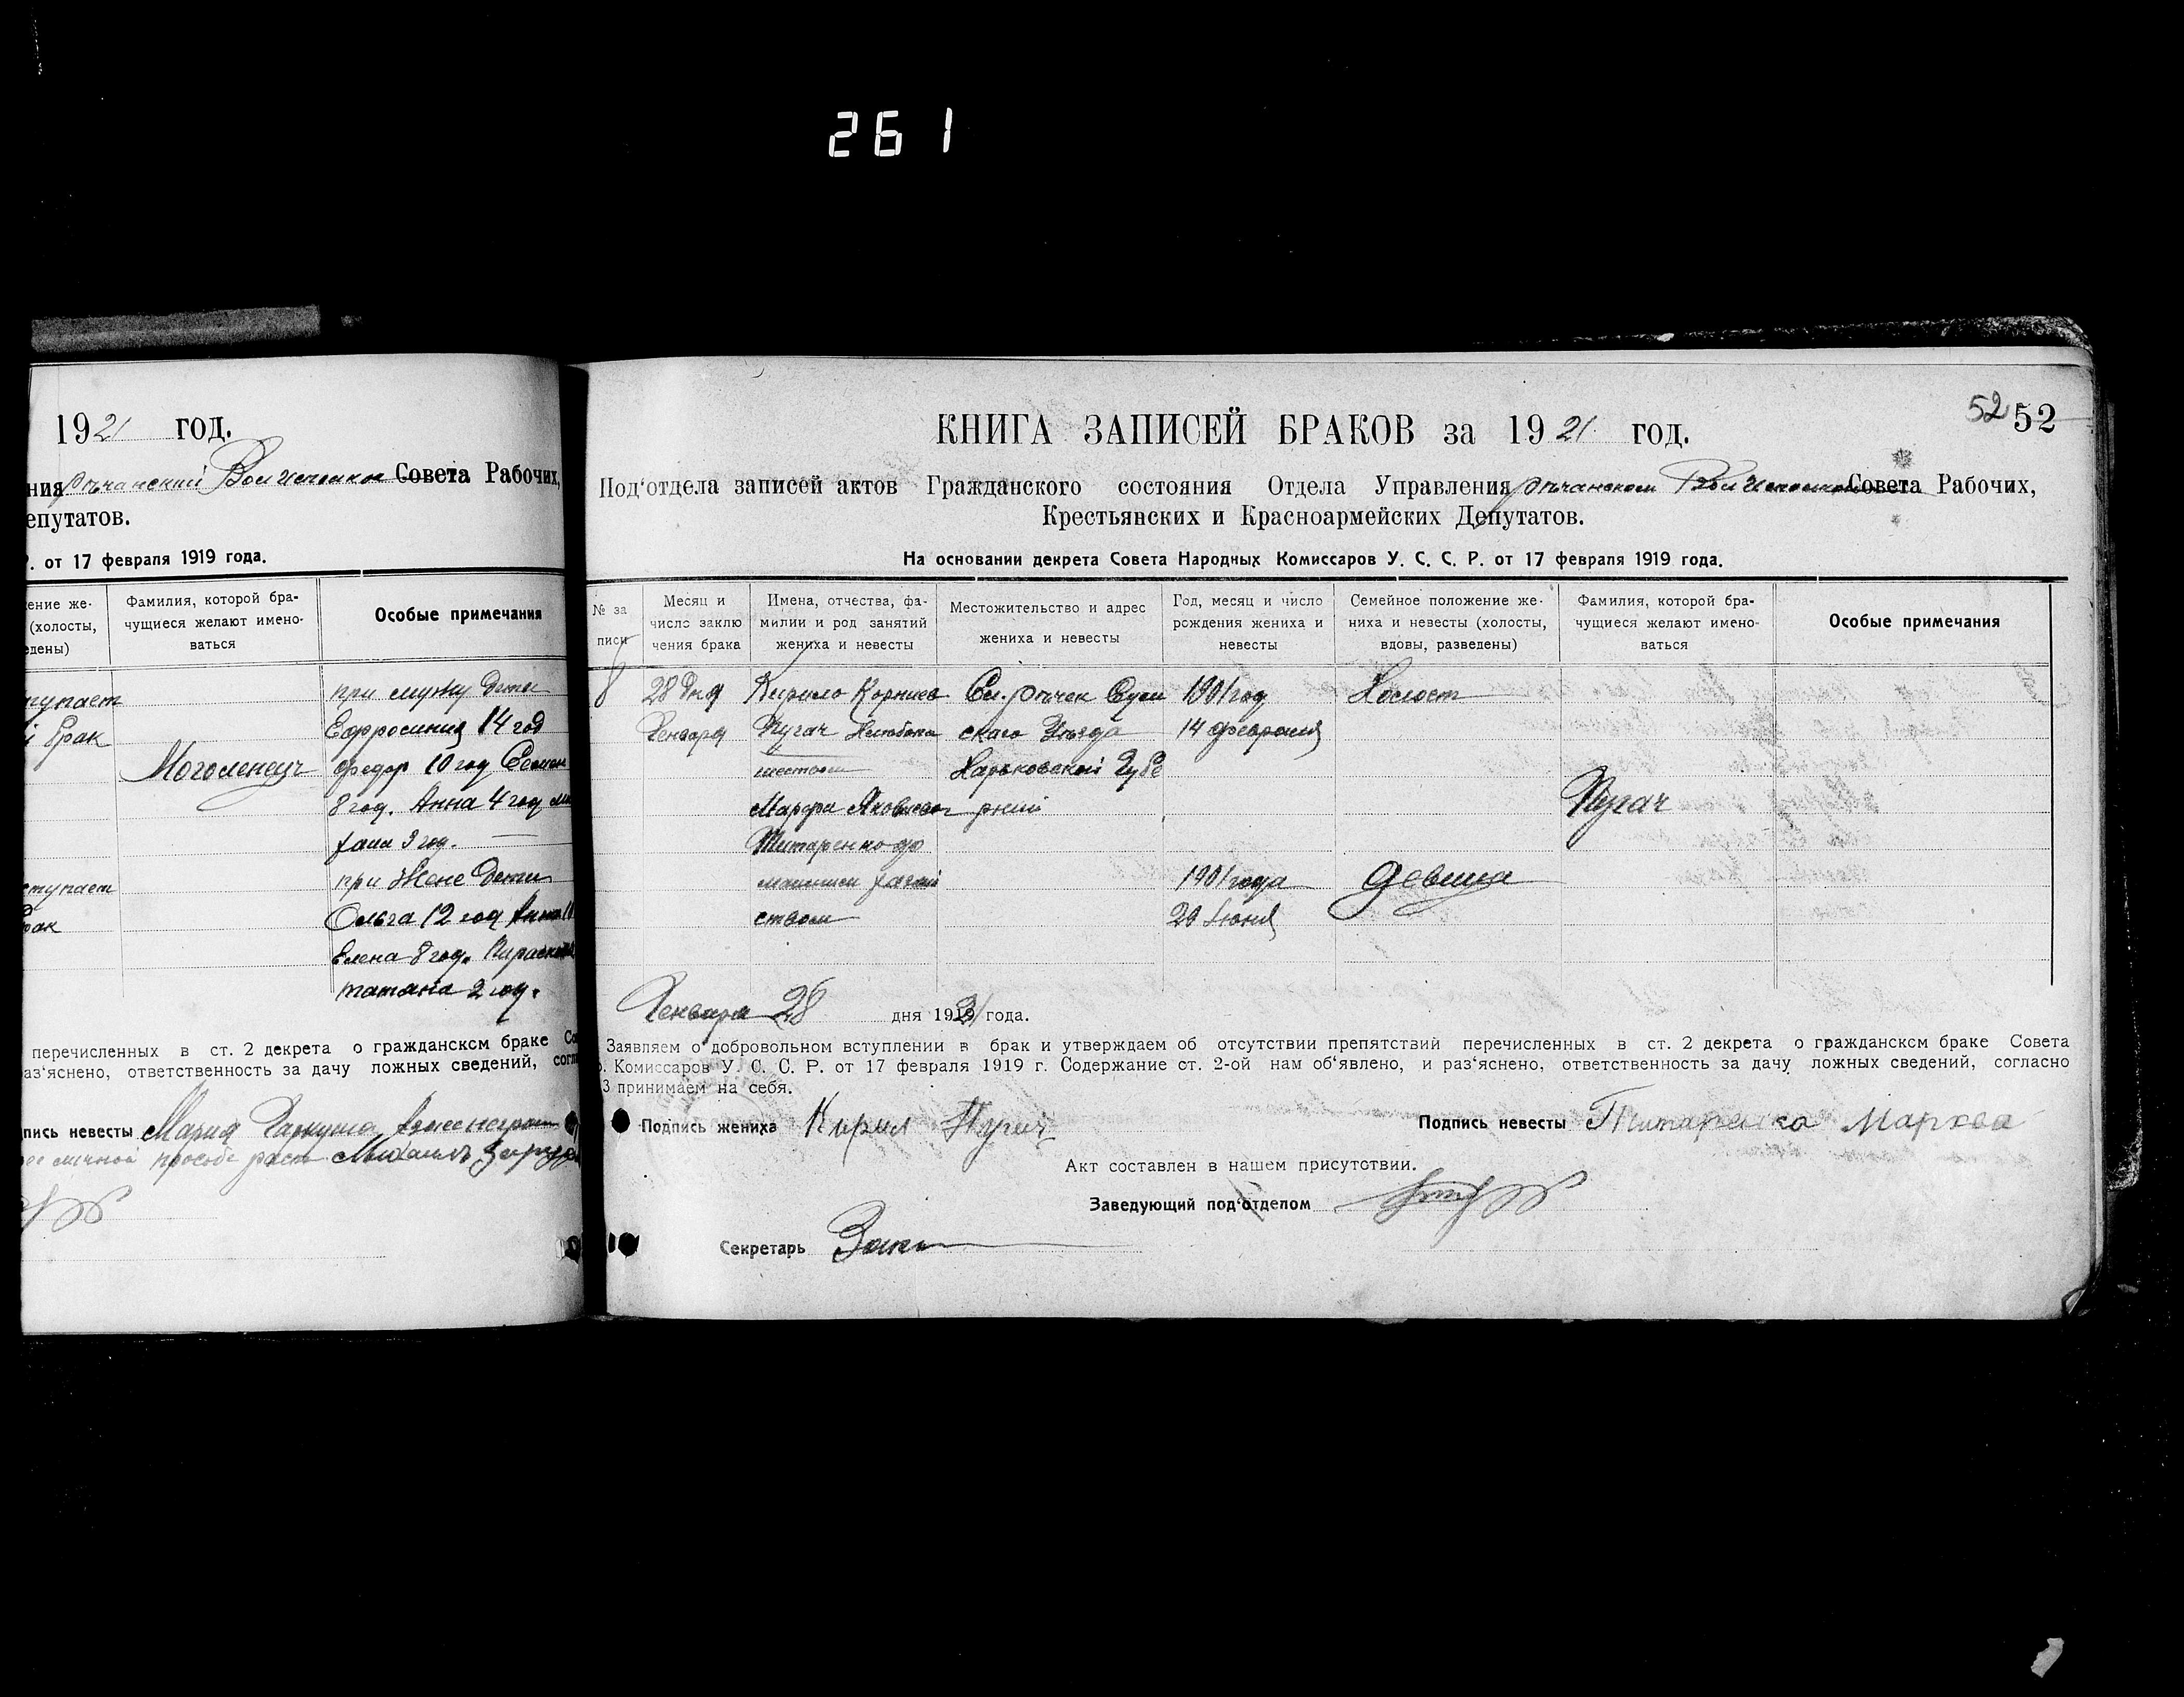 261
1921 год.
ния Рѣчанский Волисполком Совета Рабочих,
епутатов.
Р. от 17 февраля 1919 года.
ение же-
(холосты,
едены)
Фамилия, которой бра-
чущиеся желают имено-
ваться
Особые примечания
тупает
й брак
ступает
рак
при мужу дети
Ефросиния 14 год
Федор 10 год Семен
8 год. Анна 4 год
3 год.
при Жене дети
Ольга 12 год
Елена 8 год.
татана 2 год.
перечисленных в ст. 2 декрета о гражданском браке Со
аз'яснено, ответственность за дачу ложных сведений, согл
пись невесты Мария
личной просьбе
52 52
КНИГА ЗАПИСЕЙ БРАКОВ за 1921 год.
Под'отдела записей актов Гражданского состояния Отдела Управления Рѣчанском Волисполкома Совета Рабочих,
Крестьянских и Красноармейских Депутатов.
На основании декрета Совета Народных Комиссаров У. С. С. Р. от 17 февраля 1919 года.
№ за
писи
Месяц и
число заклю
чения брака
Имена, отчества, фа-
милии и род занятий
жениха и невесты
Местожительство и адрес
жениха и невесты
Год, месяц и число
рождения жениха и
невесты
Семейное положение же-
ниха и невесты (холосты,
вдовы, разведены)
Фамилия, которой бра-
чущиеся желают имено-
ваться
Особые примечания
8
28 дня
Января
Кирило Корниев
Пугач Хлебопа
шеством
Марфа Яковлева
Титаренко до
машнем хазяй
ством
Сел. Рѣчек Сум
скаго Уѣзда
Харьковской Губе
рний
1901 год
14 февраля
1901 года
29 Июня
Холост
девица
Пугач
Января 28 дня 1921 года.
Заявляем о добровольном вступлении в брак и утверждаем об отсутствии препятствий перечисленных в ст. 2 декрета о гражданском браке Совета
. Комиссаров У. С. С. Р. от 17 февраля 1919 г. Содержание ст. 2-ой нам об'явлено, и раз'яснено, ответственность за дачу ложных сведений, согласно
3 принимаем на себя.
Подпись жениха Кирил Пугич
Подпись невесты Титаренка Мархва
Акт составлен в нашем присутствии.
Заведующий под'отделом
Секретарь